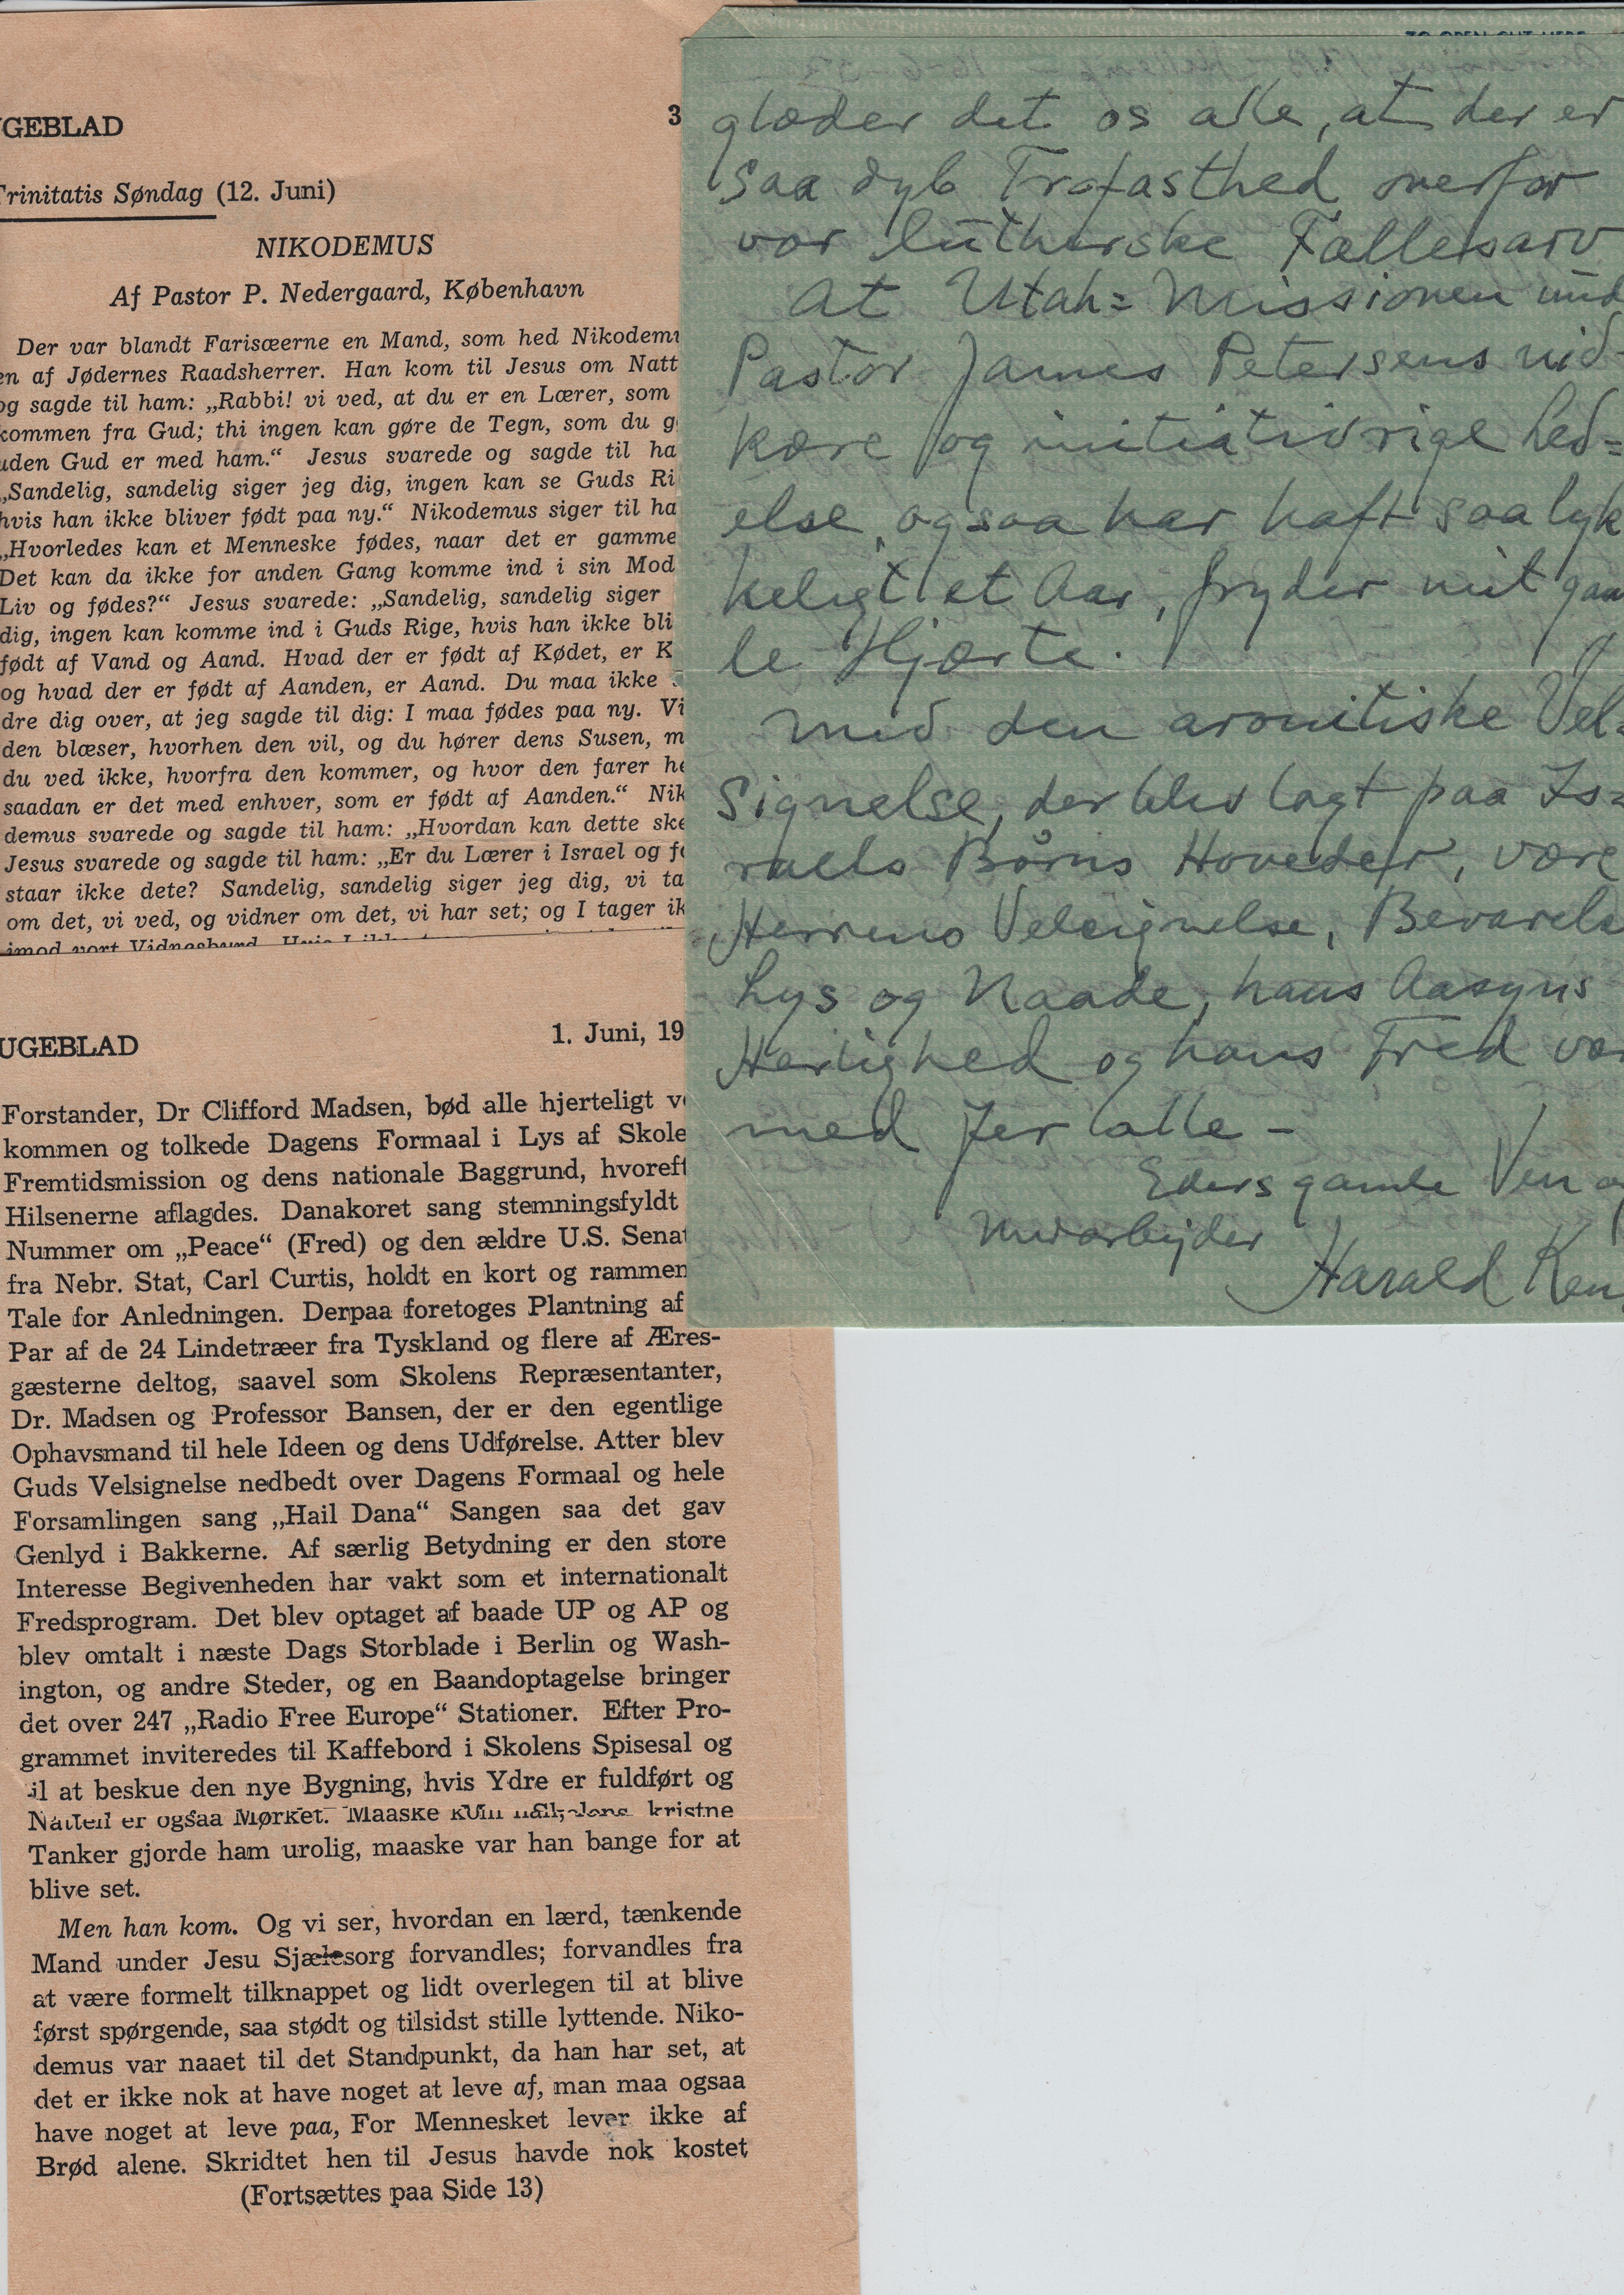 UGEBLAD 3
Trinitatis Søndag (12. Juni)
NIKODEMUS
Af Pastor P. Nedergaard, København
Der var blandt Farisæerne en Mand, som hed Nikodemu
en af Jødernes Raadsherrer. Han kom til Jesus om Natt
og sagde til ham: „Rabbi! vi ved, at du er en Lærer, som
kommen fra Gud; thi ingen kan gøre de Tegn, som du g
uden Gud er med ham.“ Jesus svarede og sagde til ha
„Sandelig, sandelig siger jeg dig, ingen kan se Guds Ri
hvis han ikke bliver født paa ny.“ Nikodemus siger til ha
„Hvorledes kan et Menneske fødes, naar det er gamme
Det kan da ikke for anden Gang komme ind i sin Mod
Liv og fødes?“ Jesus svarede: „Sandelig, sandelig siger
dig, ingen kan komme ind i Guds Rige, hvis han ikke bli
født af Vand og Aand. Hvad der er født af Kødet, er K
og hvad der er født af Aanden, er Aand. Du maa ikke
dre dig over, at jeg sagde til dig: I maa fødes paa ny. Vi
den blæser, hvorhen den vil, og du hører dens Susen, m
du ved ikke, hvorfra den kommer, og hvor den farer he
saadan er det med enhver, som er født af Aanden.“ Nik
demus svarede og sagde til ham: „Hvordan kan dette ske
Jesus svarede og sagde til ham: „Er du Lærer i Israel og fo
staar ikke dete? Sandelig, sandelig siger jeg dig, vi ta
om det, vi ved, og vidner om det, vi har set; og I tager ik
imod vort Vidnesbyrd.
UGEBLAD 1. Juni, 19
Forstander, Dr Clifford Madsen, bød alle hjerteligt ve
kommen og tolkede Dagens Formaal i Lys af Skole
Fremtidsmission og dens nationale Baggrund, hvoreft
Hilsenerne aflagdes. Danakoret sang stemningsfyldt
Nummer om „Peace“ (Fred) og den ældre U.S. Senat
fra Nebr. Stat, Carl Curtis, holdt en kort og rammen
Tale for Anledningen. Derpaa foretoges Plantning af
Par af de 24 Lindetræer fra Tyskland og flere af Æres-
gæsterne deltog, saavel som Skolens Repræsentanter,
Dr. Madsen og Professor Bansen, der er den egentlige
Ophavsmand til hele Ideen og dens Udførelse. Atter blev
Guds Velsignelse nedbedt over Dagens Formaal og hele
Forsamlingen sang „Hail Dana“ Sangen saa det gav
Genlyd i Bakkerne. Af særlig Betydning er den store
Interesse Begivenheden har vakt som et internationalt
Fredsprogram. Det blev optaget af baade UP og AP og
blev omtalt i næste Dags Storblade i Berlin og Wash-
ington, og andre Steder, og en Baandoptagelse bringer
det over 247 „Radio Free Europe“ Stationer. Efter Pro-
grammet inviteredes til Kaffebord i Skolens Spisesal og
il at beskue den nye Bygning, hvis Ydre er fuldført og
Natten er ogsaa Mørket. Maaske kristne
Tanker gjorde ham urolig, maaske var han bange for at
blive set.
Men han kom. Og vi ser, hvordan en lærd, tænkende
Mand under Jesu Sjælesorg forvandles; forvandles fra
at være formelt tilknappet og lidt overlegen til at blive
først spørgende, saa stødt og tilsidst stille lyttende. Niko-
demus var naaet til det Standpunkt, da han har set, at
det er ikke nok at have noget at leve af, man maa ogsaa
have noget at leve paa, For Mennesket lever ikke af
Brød alene. Skridtet hen til Jesus havde nok kostet
(Fortsættes paa Side 13)
TO OPEN CUT HERE
glæder det os alle, at der er
saa dyb Trofasthed overfor
vor lutherske Fællesarv
At Utah= Missionen und
Pastor James Petersens nid-
kære og initiativrige Led=
else ogsaa har haft saa lyk
keligt et Aar, fryder mit gam
le Hjærte.
Med den aronitiske Vel=
signelse, der blev lagt paa Is=
raels Børns Hoveder, være
Herrens Velsignelse, Bevarels
Lys og Naade, hans Aasyns
Herlighed og hans Fred vær
med Jer alle –
Eders gamle Ven og
Medarbejder
Harald Ken